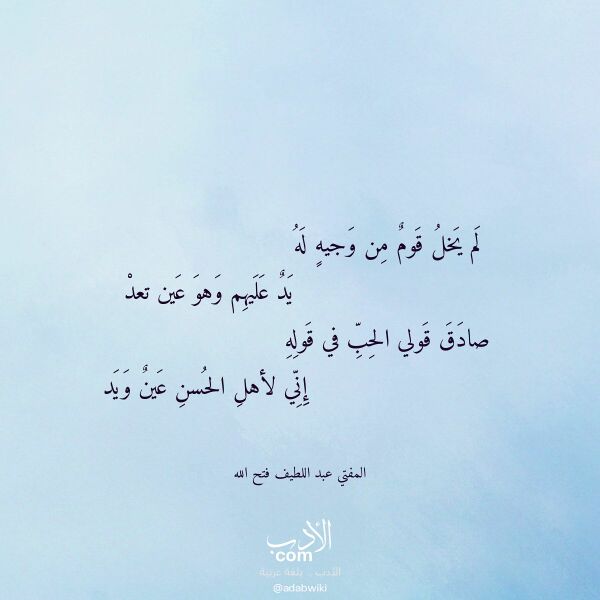 لَم يَخلُ قَومٌ مِن وَجيهٍ لَهُ
يَدٌ عَلَيهِم وَهوَ عَين تعدْ
صادَقَ قَولي الحِبِّ في قَولِهِ
إِنِّي لأهلِ الحُسنِ عَينٌ وَيَد
المفتي عبد اللطيف فتح الله
الأدب
com
الأدب .. بلغة عربية
@adabwiki